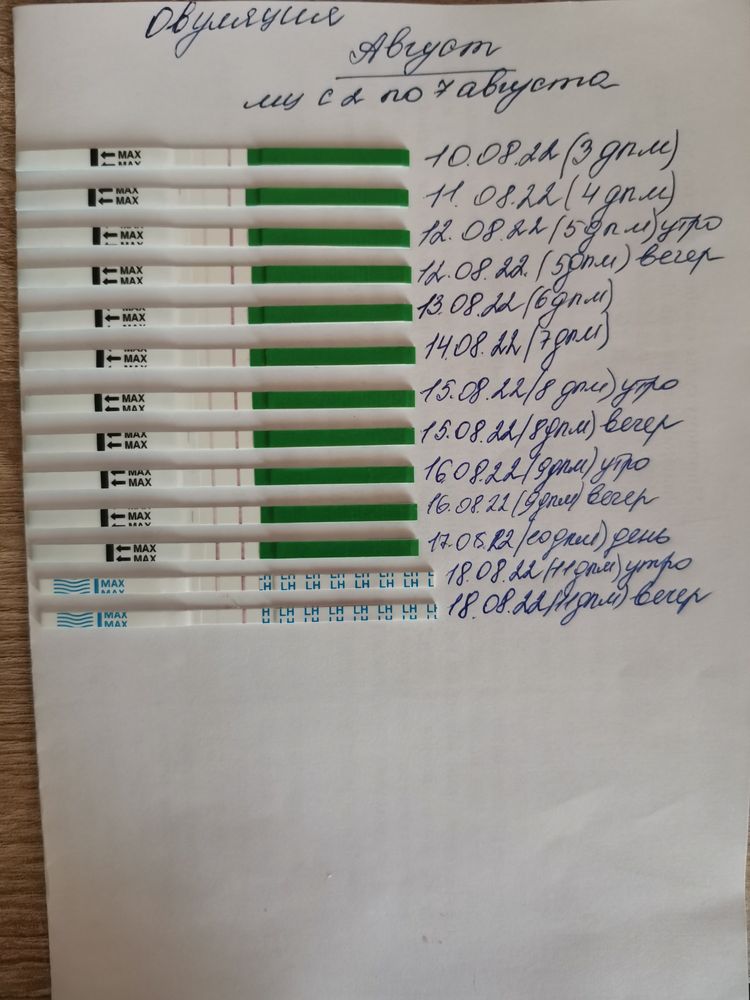 Овуляция
Август
мц с 2 по 7 августа
MAX MAX 10.08.22 (3 дпм)
MAX MAX 11.08.22 (4 дпм)
MAX MAX 12.08.22 (5 дпм) утро
MAX MAX 12.08.22. (5 дпм) вечер
MAX MAX 13.08.22 (6 дпм)
MAX MAX 14.08.22 (7 дпм)
MAX MAX 15.08.22 (8 дпм) утро
MAX MAX 15.08.22 (8 дпм) вечер
MAX MAX 16.08.22 (9 дпм) утро
MAX MAX 16.08.22 (9 дпм) вечер
MAX MAX 17.08.22 (10 дпм) день
MAX MAX LH LH LH LH LH LH LH LH 18.08.22 (11 дпм) утро
MAX MAX LH LH LH LH LH LH LH 18.08.22 (11 дпм) вечер